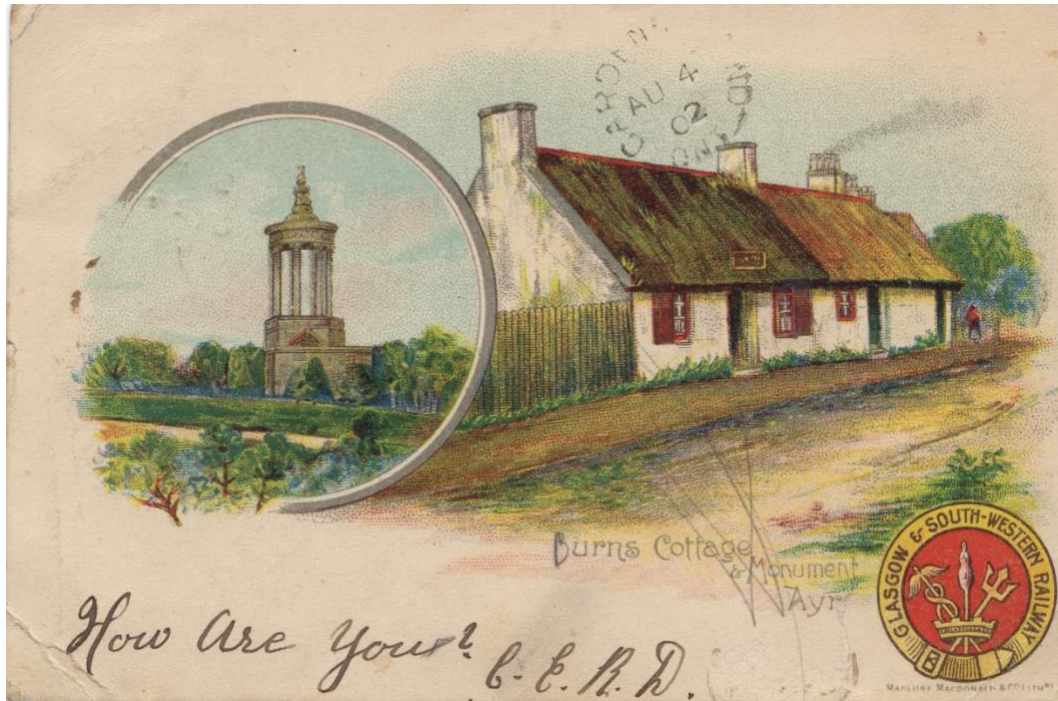 AU 4
02
ONT
Burns Cottage
& Monument
Ayr
GLASGOW & SOUTH-WESTERN RAILWAY
How Are You?
C. E. R. D.
MACLURE MACDONALD & CO LITHRS